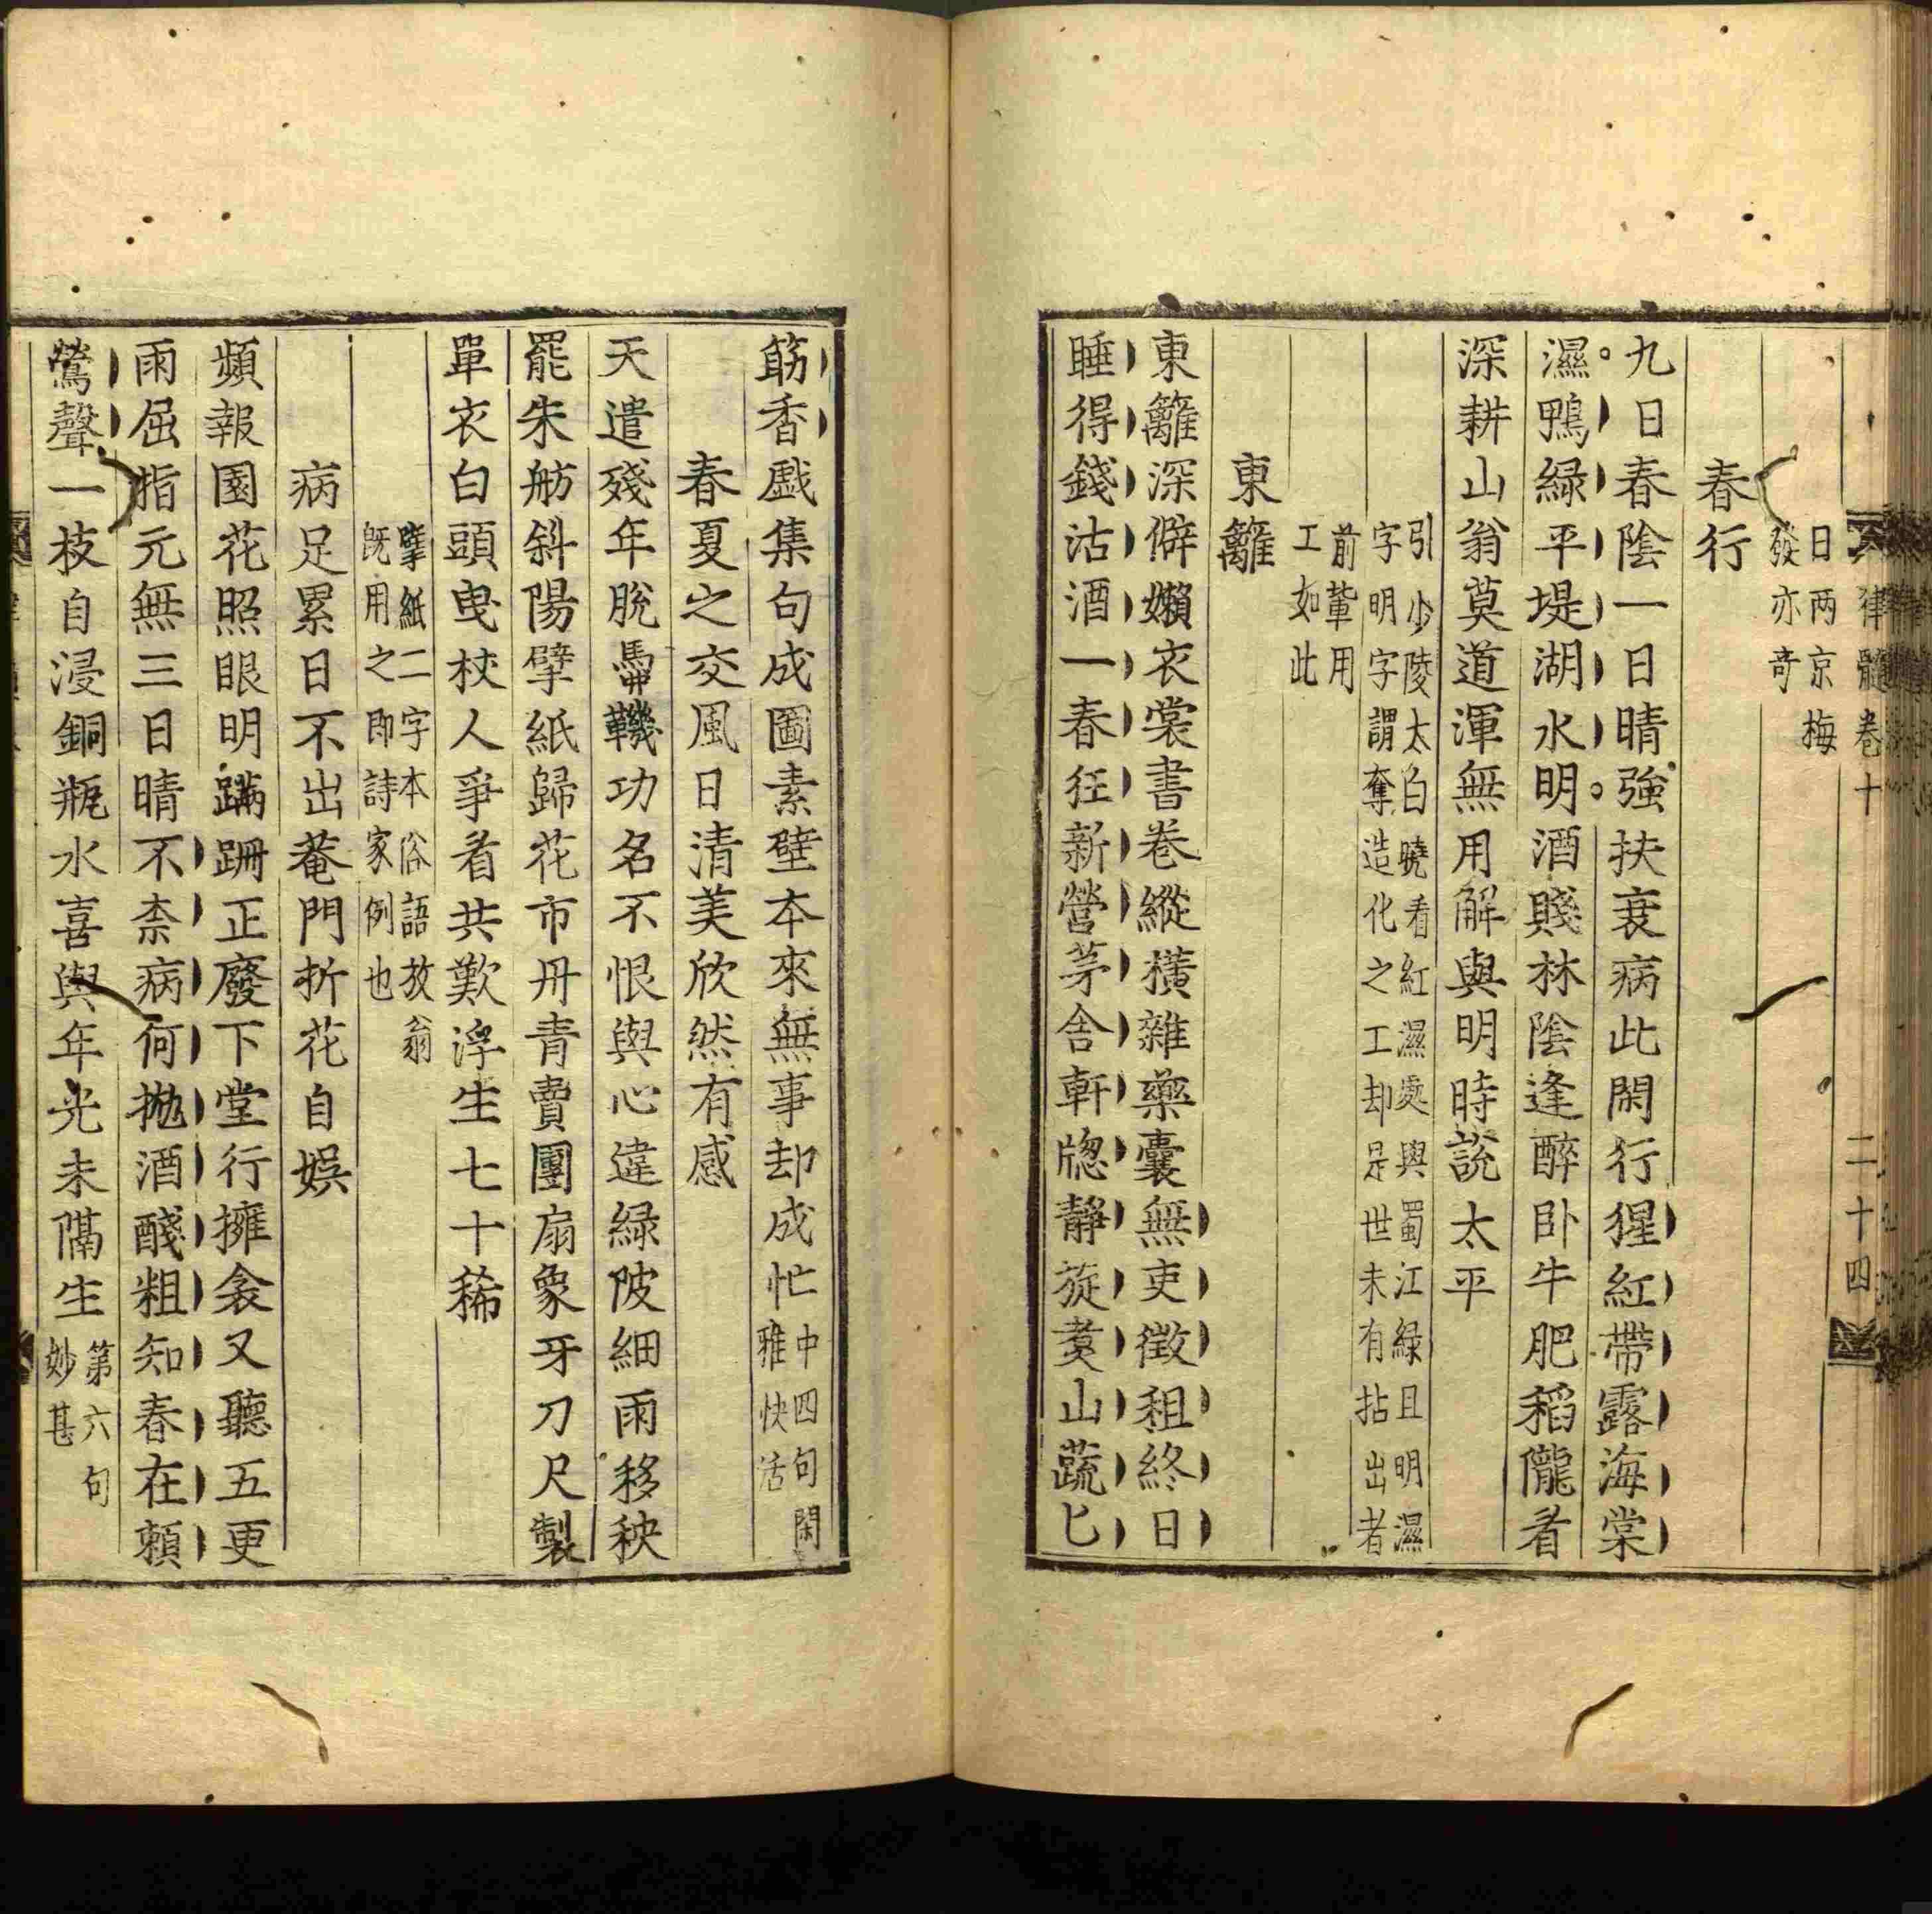 律髓卷十 二十四
日两京梅
發亦竒
春行
九日春陰一日晴強扶衰病此閑行猩紅帶露海棠
濕鴨緑平堤湖水明酒賤林陰逢醉卧牛肥稻隴看
深耕山翁莫道渾無用解與明時説太平
引少陵太白曉看紅濕處與蜀江緑且明濕
字明字謂奪造化之工却是世未有拈出者
前軰用
工如此
東籬
東籬深僻嬾衣裳書卷縱橫雜藥囊無吏徴租終日
睡得錢沽酒一春狂新營茅舎軒牕靜旋煑山蔬匕
筯香戯集句成圖素壁本來無事却成忙
中四句閑
雅快活
春夏之交風日清美欣然有感
天遣殘年脫馽鞿功名不恨與心違緑陂細雨移秧
罷朱舫斜陽擘紙歸花市丹青賣團扇象牙刀尺製
單衣白頭曳杖人爭看共歎浮生七十稀
擘紙二字本俗語放翁
既用之即詩家例也
病足累日不出菴門折花自娯
頻報園花照眼明蹣跚正廢下堂行擁衾又聽五更
雨屈指元無三日晴不柰病何抛酒醆粗知春在頼
鶯聲一枝自浸銅瓶水喜與年光未隔生
第六句
妙甚